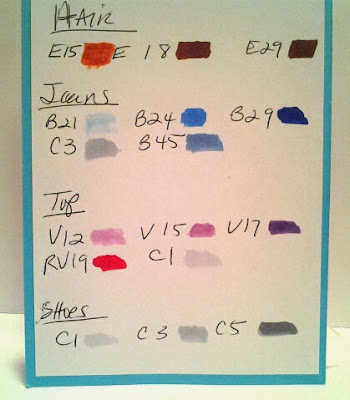 Hair
E15 E18 E29
Jeans
B21 B24 B29
C3 B45
Top
V12 V15 V17
RV19 C1
Shoes
C1 C3 C5